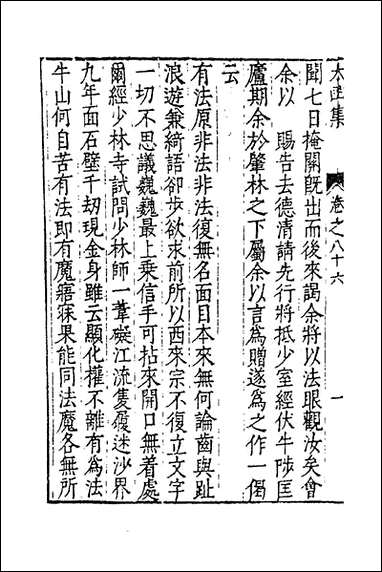 太函集 卷之八十六 一
聞七日掩關旣出而後來謁余將以法眼觀汝矣會
余以 賜告去德清請先行將抵少室經伏牛陟匡
廬期余於肇林之下屬余以言爲贈遂爲之作一偈
云
有法原非法非法復無名面目本來無何論齒與趾
浪遊兼綺語卻步欲求前所以西來宗不復立文字
一切不思議巍巍最上乘信手可拈來開口無着處
爾經少林寺試問少林師一葦礙江流隻履迷沙界
九年面石壁千刼現金身雖云顯化權不離有爲法
牛山何自苦有法即有魔寤寐果能同法魔各無所